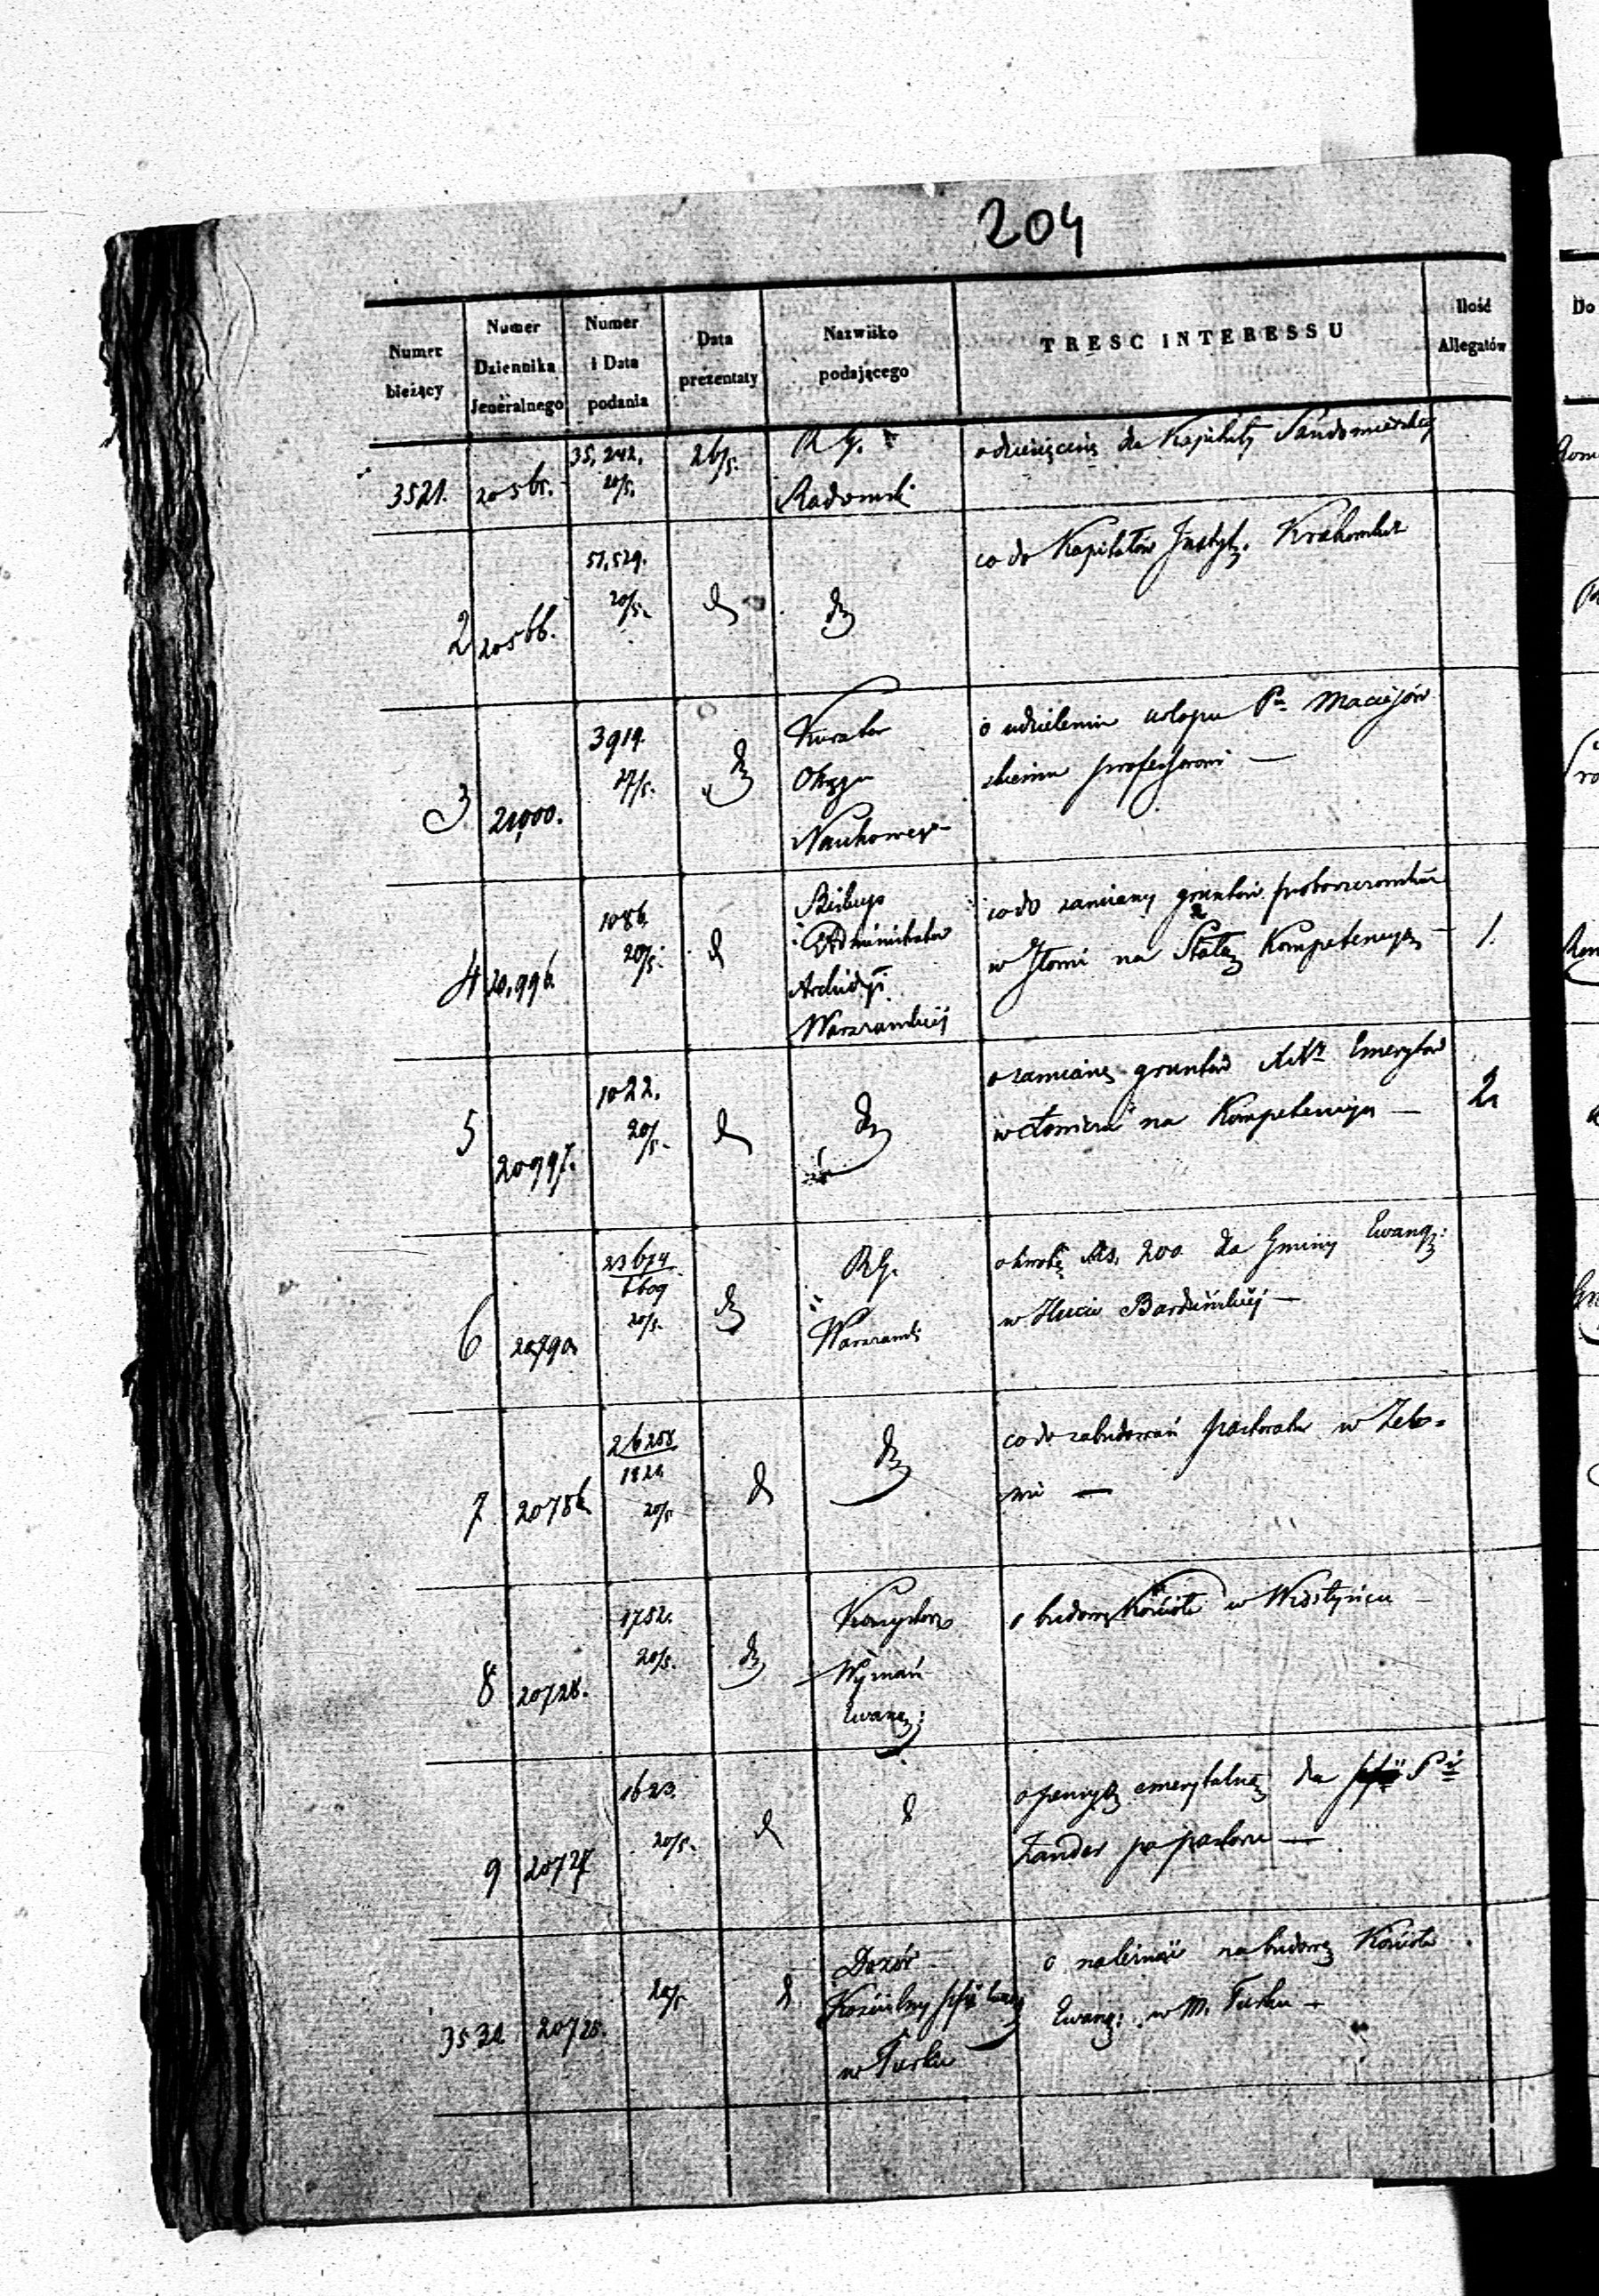 204
Numer bieżący
Numer Dziennika Jeneralnego
Numer i Data podania
Data prezentaty
Nazwisko podającego
TRESC INTERESSU
Ilość Allegatów
Do
3521. 20565. 35,242. 20/5. 26/5. R. G. Radomski
o dziesięcinę dla Kapituły Sandomierskiej
2 20566. 51,529. 20/5. d d
co do Kapitałów Instyt.
3 21,000. 3919. 27/5. d Kurator Okręgu Naukowego
o udzielenie urlopu Pu Maciejów
skiemu professorowi —
4 20,996. 1086. 20/5. d Biskup Administrator Archidyi Warszawskiej
co do zamiany gruntów
w na Stałą Kompetencyą — 1.
5 20997. 1022. 20/5. d d
o zamianę gruntów Emerytów
na Kompetencyą — 2
6 20790. 23674/6609 20/5. d RG. Warszawski
o kwotę Rs. 200 dla Gminy Ewang:
w Hucie Bardzińskiej —
7 20786 26258/1821 20/5 d d
co do zabudowań pastoratu w Zelo-
wie —
8 20728. 1752. 20/5. d Konsystorz Wyznań Ewang:
o budowę Kościoła w Wisztyńcu —
9 20727 1623. 20/5. d d
o pensyą emerytalną dla Pi
Zander po pastorze —
3530. 20725. 20/5 d. Dozór Kościelny w Turku
o na budowę Kościoła
Ewang: w M. Turku —